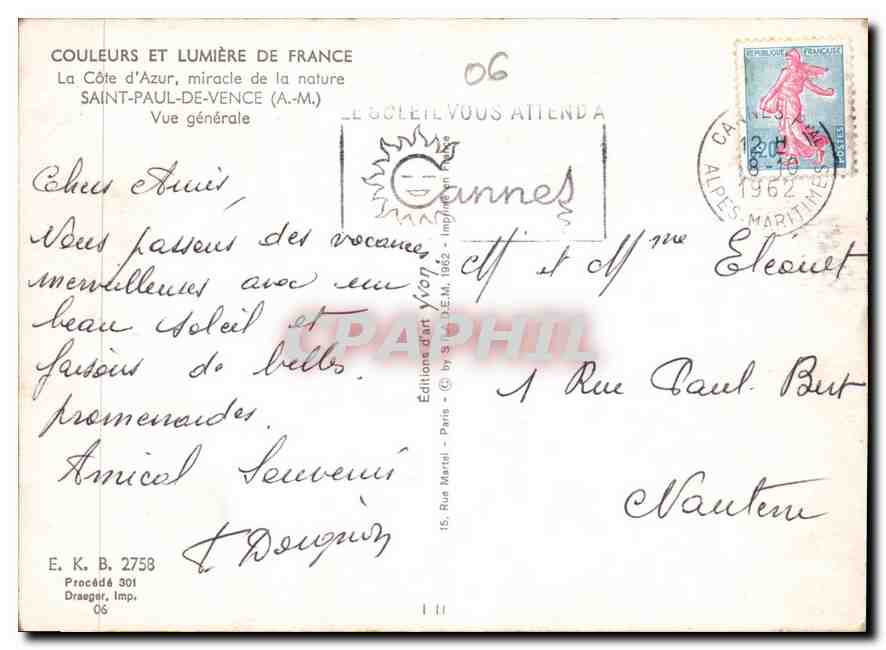 COULEURS ET LUMIÈRE DE FRANCE
La Côte d'Azur, miracle de la nature
SAINT-PAUL-DE-VENCE (A.-M.)
Vue générale
06
LE SOLEIL VOUS ATTEND A
Cannes
REPUBLIQUE FRANÇAISE
POSTES
0,20
CANNES
12 H
8-10
1962
ALPES-MARITIMES
Chers Amis,
Nous passons des vacances
merveilleuses avec un
beau soleil et
faisons de belles
promenades.
Amical Souvenir
Editions d'art Yvon.
15, Rue Martel - Paris - © by S.P.A.D.E.M. 1962 - Imprimé en France
M et Mme
1 Rue Paul Bert
Nanterre
CPAPHIL
E. K. B. 2758
Procédé 301
Draeger, Imp.
06